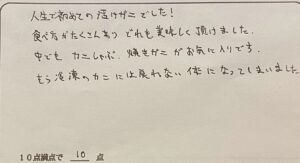 人生で初めての活けガニでした!
食べ方がたくさんあり どれも美味しく頂けました。
中でも カニしゃぶ、焼きガニがお気に入りです。
もう冷凍のカニには戻れない体になってしまいました
10点満点で 10 点